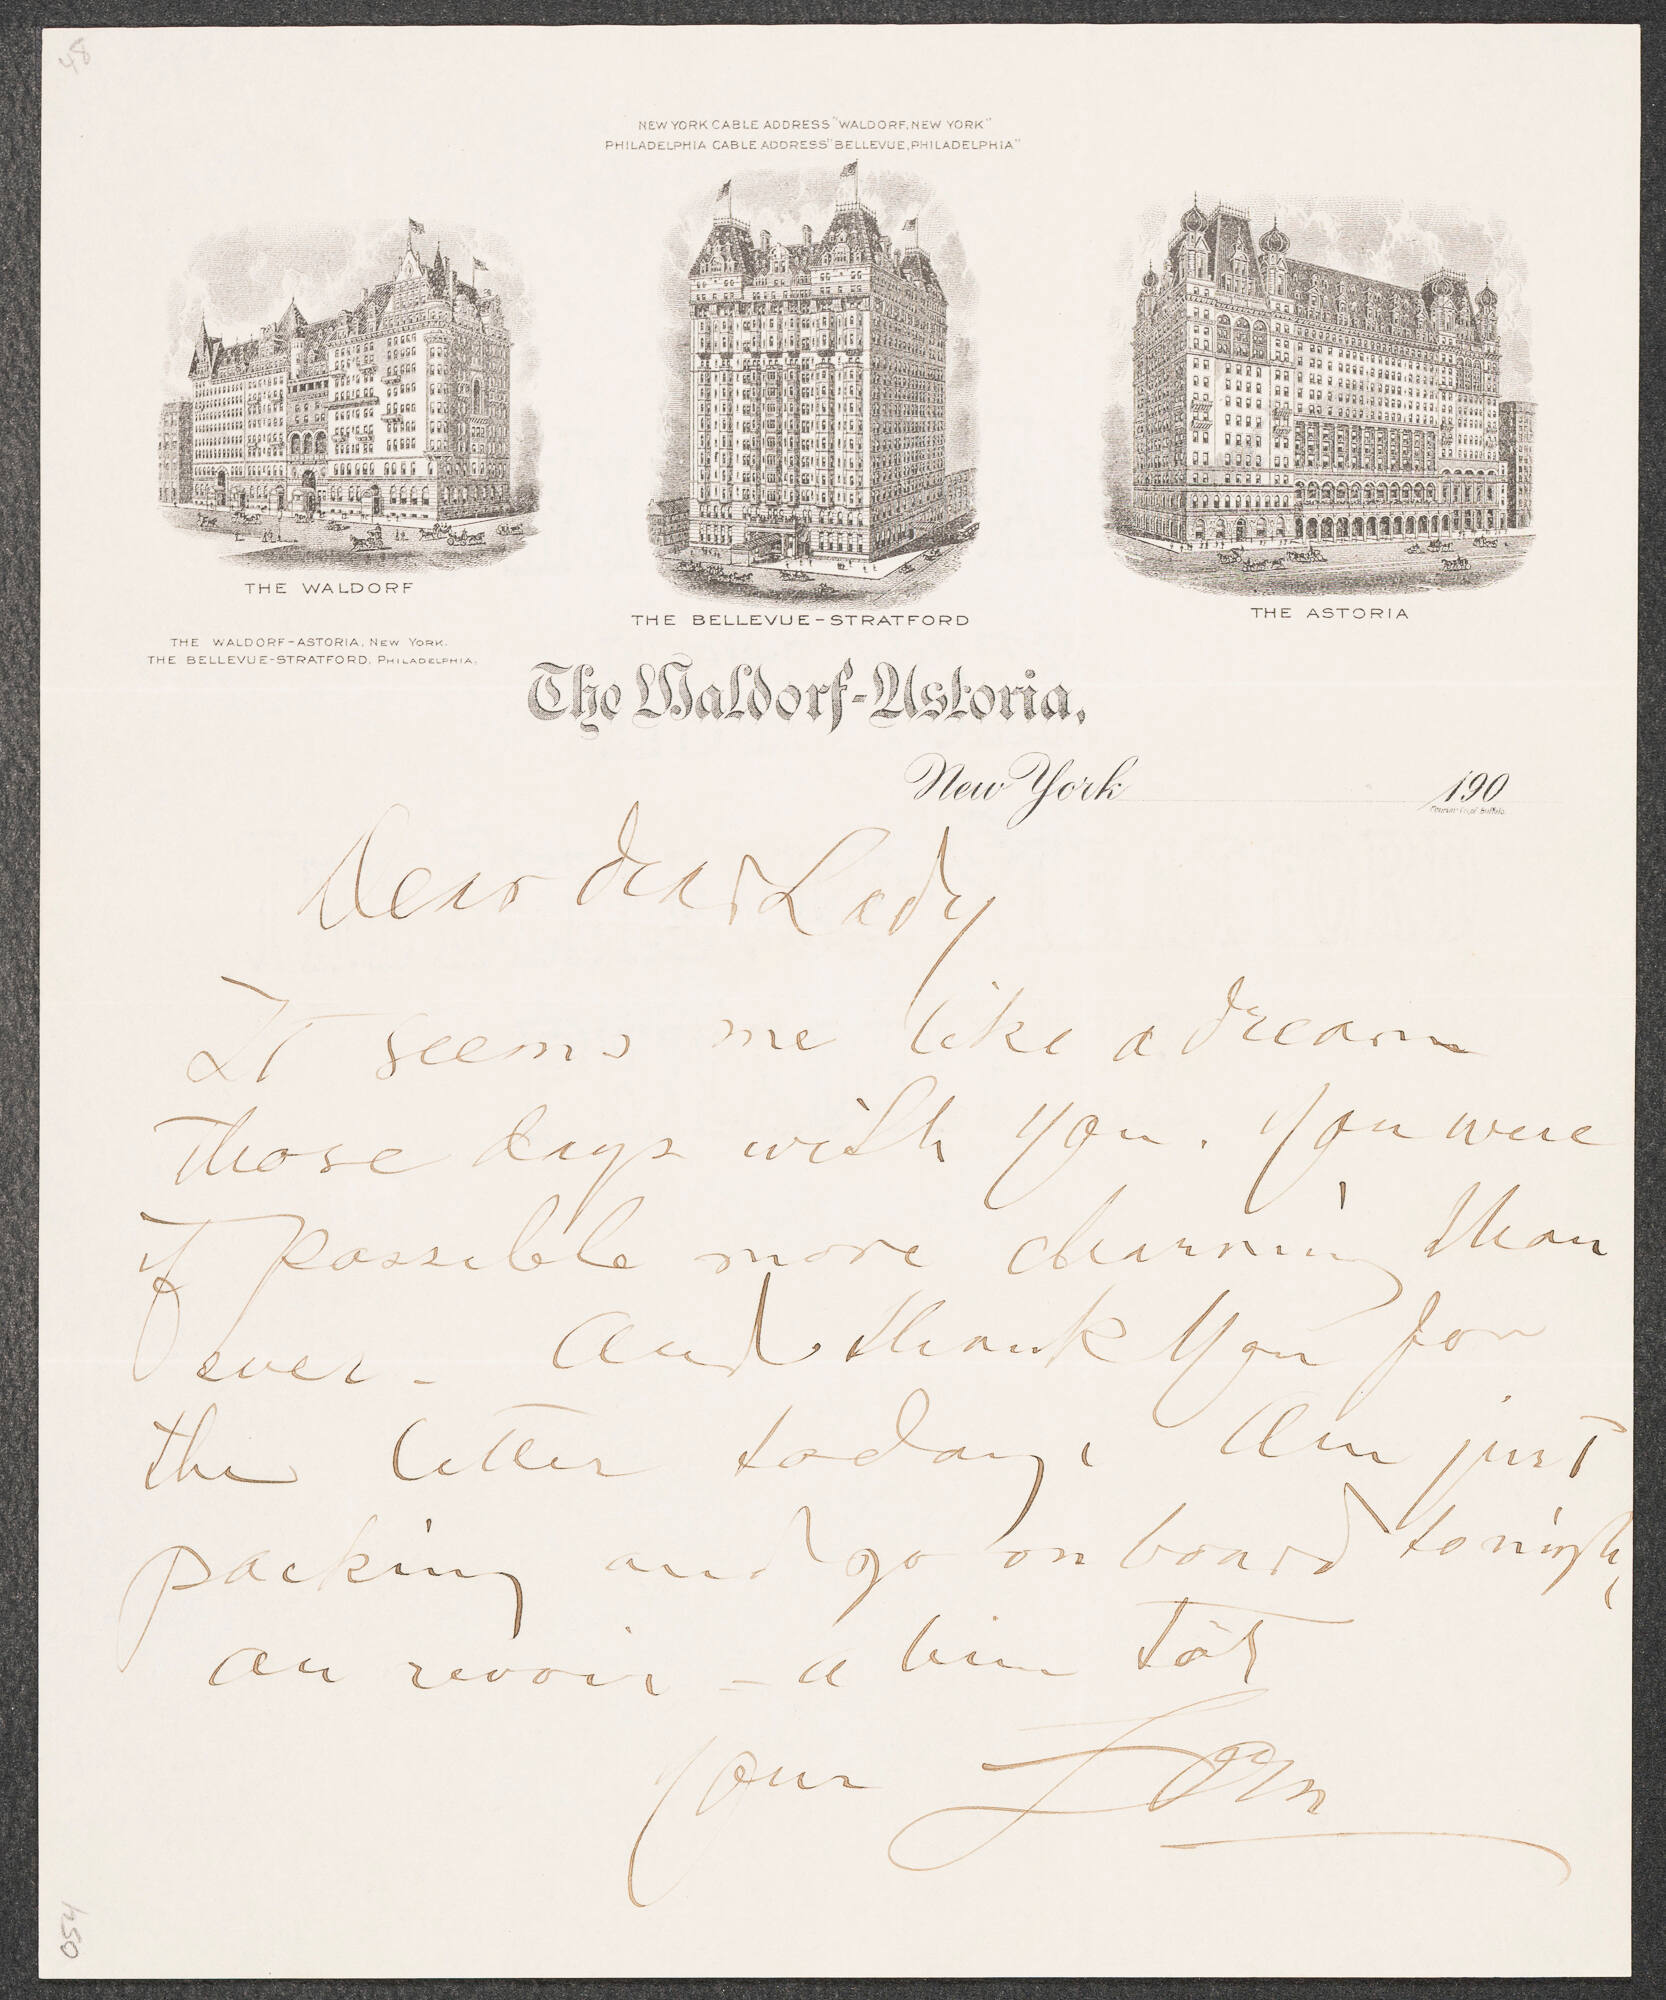 48
NEW YORK CABLE ADDRESS "WALDORF, NEW YORK"
PHILADELPHIA CABLE ADDRESS "BELLEVUE, PHILADELPHIA"
THE WALDORF
THE BELLEVUE-STRATFORD
THE ASTORIA
THE WALDORF-ASTORIA, NEW YORK.
THE BELLEVUE-STRATFORD, PHILADELPHIA.
The Waldorf-Astoria,
New York 190
Dear dear Lady
It seems me like a dream
those days with you. You were
if possible more charming than
ever - and thank you for
the letter today. Am just
packing and go on board tonight,
au revoir - a bien tôt
your